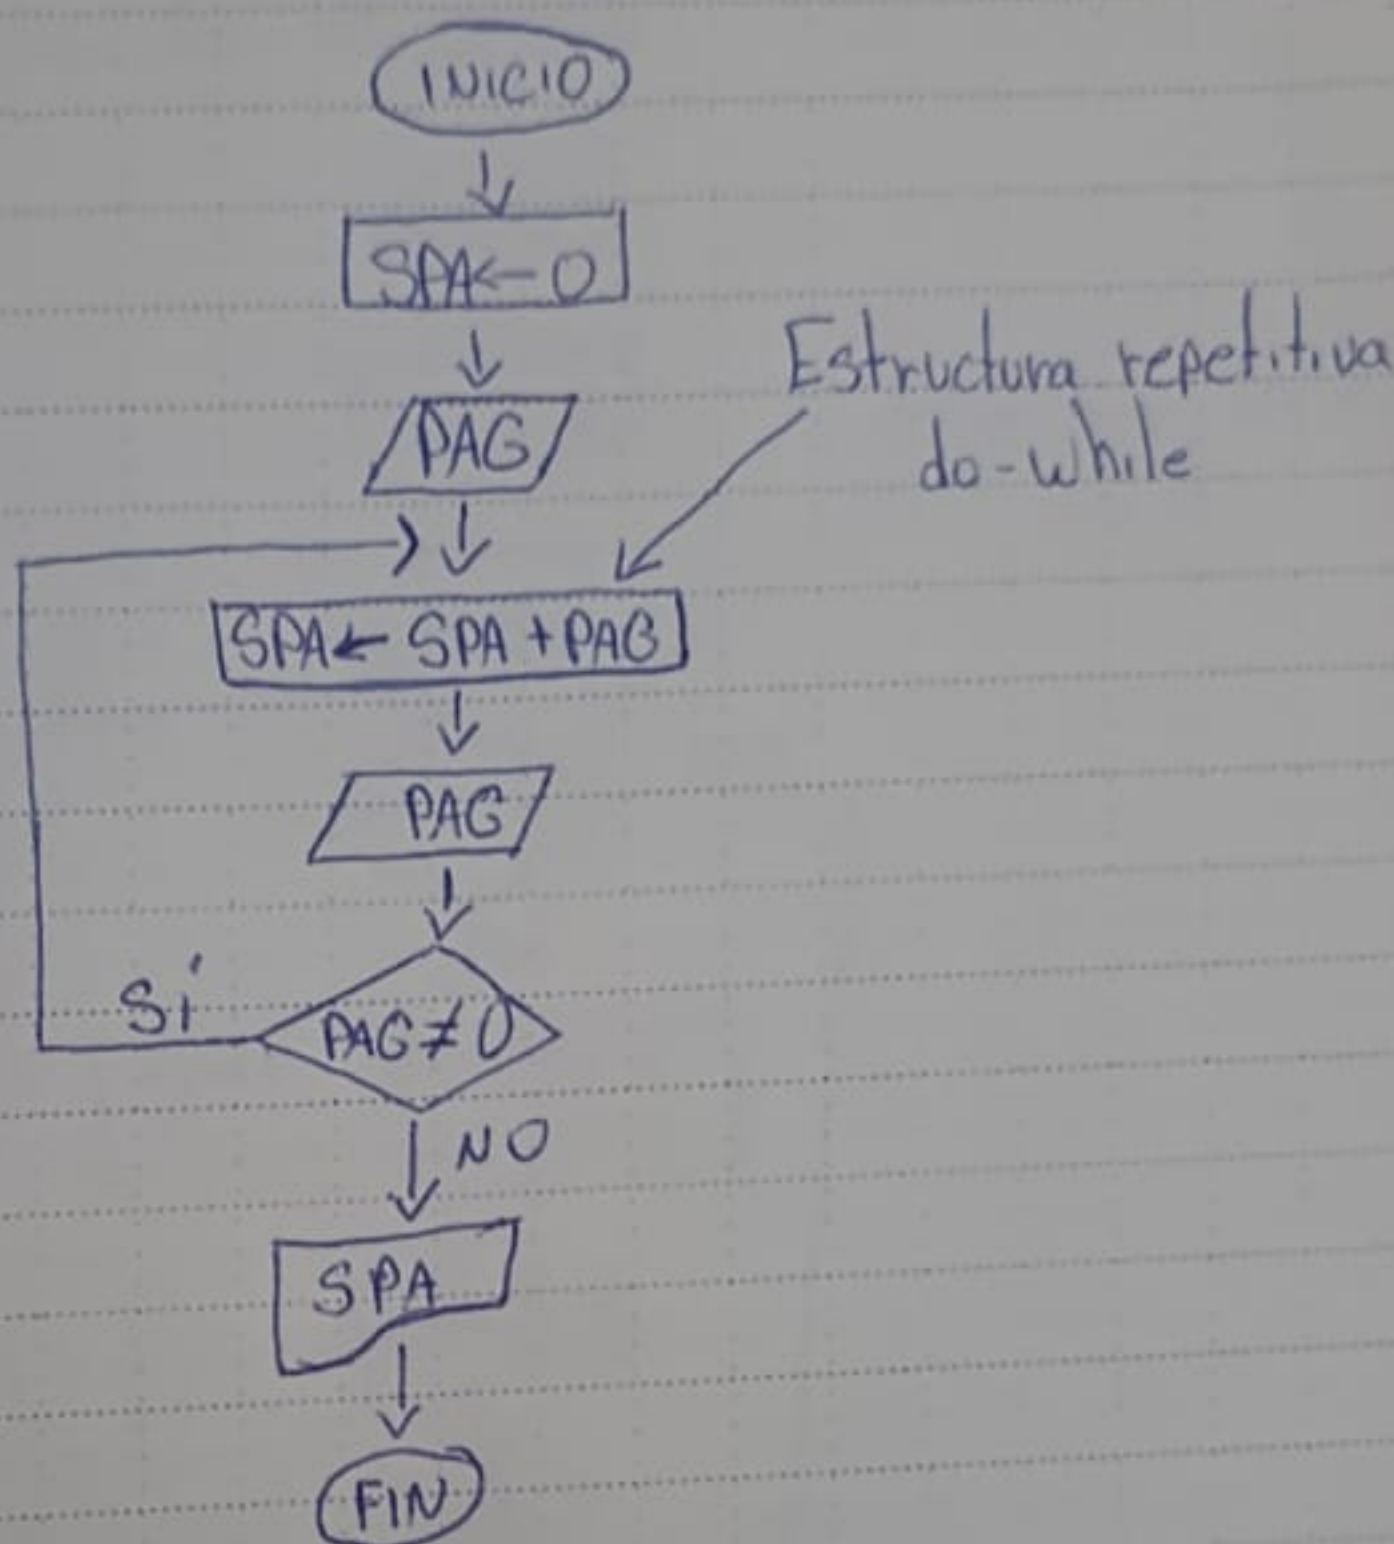 INICIO
SPA ← 0
PAG
Estructura repetitiva
do-while
SPA ← SPA + PAG
PAG
SÍ
PAG ≠ 0
NO
SPA
FIN